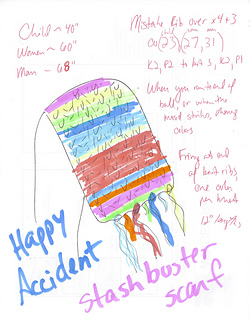 Child ~ 40"
Women ~ 60"
Man ~ 68"
Mistake Rib over x4+3
co (23) (27, 31)
child wom man
K2, P2 to last 3, K2, P1
When you run out of
ball or when the
mood strikes, change
colors
Fring at end
of knit ribs
one color
per bunch
12" lengths
Happy
Accident
stashbuster
scarf